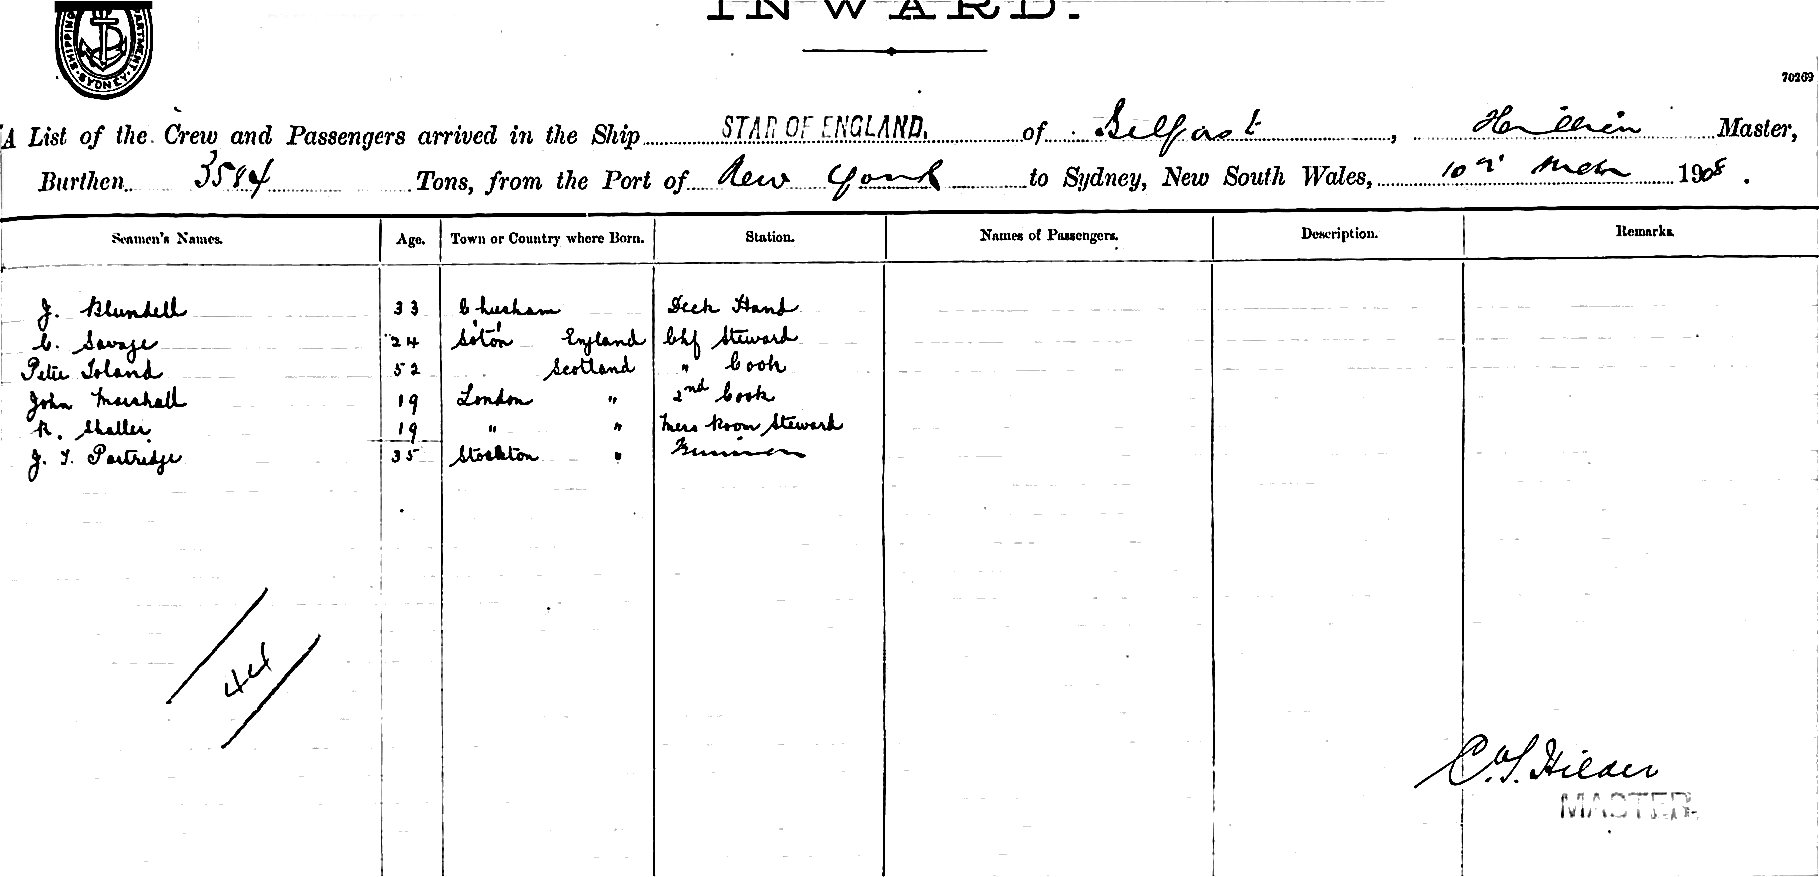 INWARD.
SHIPPING DEPARTMENT. SYDNEY.
70269
A List of the Crew and Passengers arrived in the Ship STAR OF ENGLAND. of Belfast, Master,
Burthen 3584 Tons, from the Port of New York to Sydney, New South Wales, 10th March 1908.
Seamen's Names. Age. Town or Country where Born. Station. Names of Passengers. Description. Remarks.
J. Blundell 33 Deck Hand
C. Savage 24 So'ton England Chf Steward
Peter Toland 52 Scotland " Cook
John Marshall 19 London " 2nd Cook
R. Shaller 19 " " Mess Room Steward
J. T. Partridge 35 Stockton "
44
Hilder
MASTER.